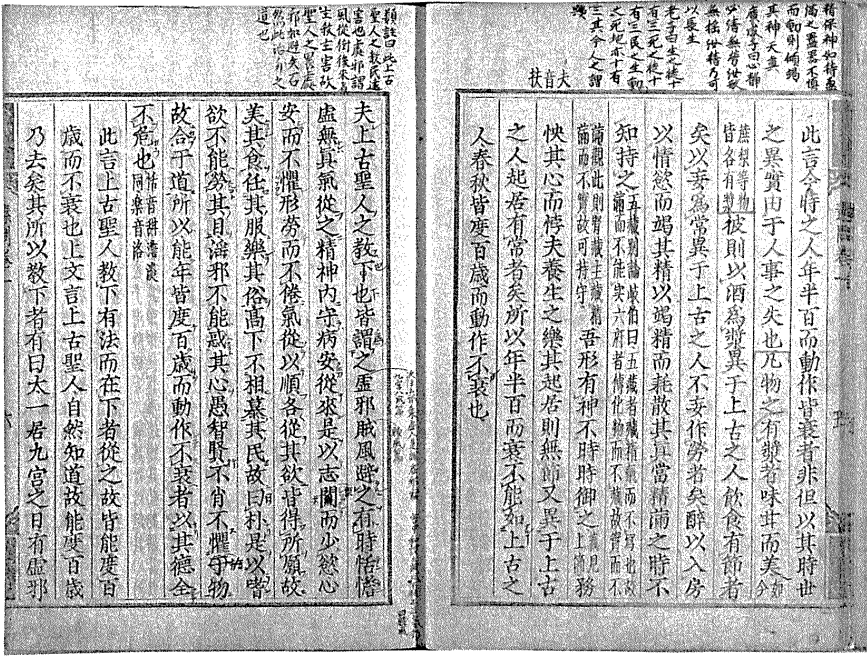 精保神如持盈
滿之器不慎
而動則傾竭
其神天真
廣成子曰必靜
必清無勞汝形
無搖汝精乃可
以長生
老子曰生之徒十
有三死之徒十
有三民之生動
之死地亦十有
三其今人之謂
歟
夫音扶
此言今時之人年半百而動作皆衰者非但以其時世
之異實由于人事之失也凡物之有漿者味甘而美如今
蔗漿等物皆各有漿彼則以酒爲漿異于上古之人飲食有節者
矣以妄爲常異于上古之人不妄作勞者矣醉以入房
以情慾而竭其精以竭精而耗散其真當精滿之時不
知持之五藏別論岐伯曰五藏者藏精氣而不寫也故滿而不能實六府者傳化物而不藏故實而不能
滿觀此則腎藏主藏精滿而不實故可持守吾形有神不時時御之義見上節務
快其心而悖夫養生之樂其起居則無節又異于上古
之人起居有常者矣所以年半百而衰不能如上古之
人春秋皆度百歲而動作不衰也
類註曰此上古
聖人之教民遠
害也虛邪謂
風從衝後來
生殺主害故
聖人之畏虛
邪如避矢石
然此治外之
道也
夫上古聖人之教下也皆謂之虛邪賊風避之有時恬憺
虛無真氣從之精神內守病安從來是以志閑而少慾心
安而不懼形勞而不倦氣從以順各從其欲皆得所願故
美其食任其服樂其俗高下不相慕其民故曰朴是以嗜
欲不能勞其目淫邪不能惑其心愚智賢不肖不懼于物
故合于道所以能年皆度百歲而動作不衰者以其德全
不危也恬音甜憺音淡同樂音洛
此言上古聖人教下有法而在下者從之故皆能度百
歲而不衰也上文言上古聖人自然知道故能度百歲
乃去矣其所以教下者有曰太一居九宮之日有虛邪